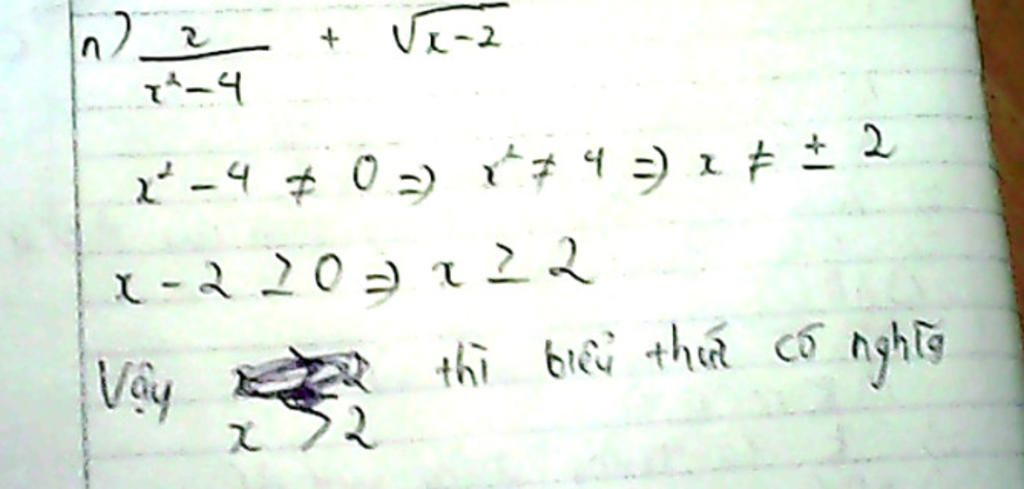 n) 2/(x²-4) + √(x-2)
x² - 4 ≠ 0 => x² ≠ 4 => x ≠ ± 2
x - 2 ≥ 0 => x ≥ 2
Vậy thì biểu thức có nghĩa
x > 2